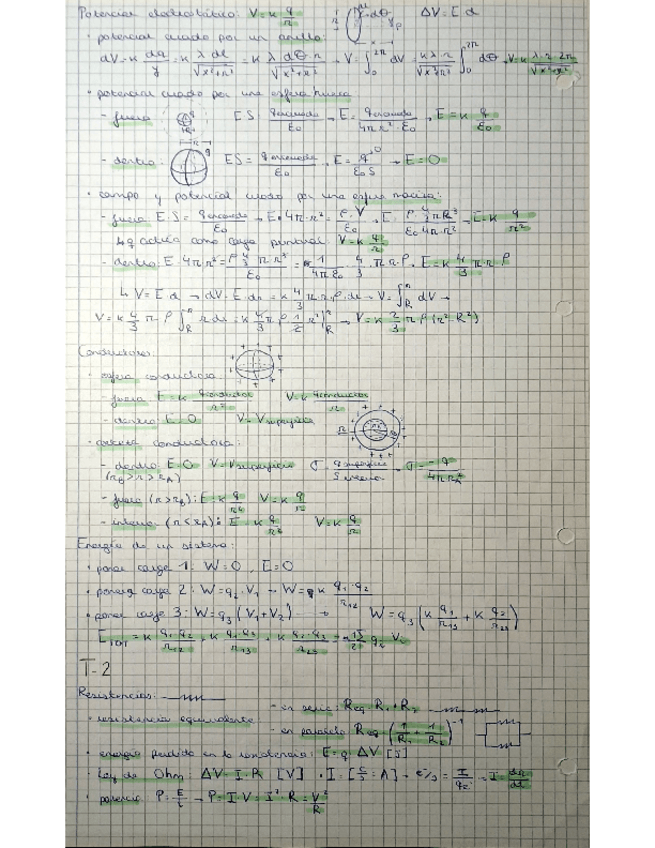 Potencial electrostático: V = k q/r   ΔV = E·d
· potencial creado por un anillo:
dV = k dq/y = k λ dl/√(x²+r²) = k λ dθ·r/√(x²+r²) → V = ∫₀^2π dV = kλ·r/√(x²+r²) ∫₀^2π dθ, V = k λ·r·2π/√(x²+r²)
· potencial creado por una esfera hueca
- fuera: E·S = q encerrada/ε₀ → E = q encerrada/4πr²·ε₀, E = k q/ε₀
- dentro: E·S = q encerrada/ε₀, E = q⁰/ε₀S → E = 0
· campo y potencial creado por una esfera maciza:
- fuera: E·S = q encerrada/ε₀ → E·4πr² = ρ·V/ε₀, E = ρ 4/3 πR³/ε₀ 4π·r², E = k q/r²
↳ q actúa como carga puntual: V = k q/r
- dentro: E·4πr² = ρ 4/3 π·r³/ε₀ = 1/4πε₀ 4/3·π·r·ρ, E = k 4/3 π·r·ρ
↳ V = E·d → dV = E·dr = k 4/3 π·r·ρ·dr → V = ∫_R^r dV →
V = k 4/3 π·ρ ∫_R^r r dr = k 4/3 π ρ [1/2 r²]_R^r → V = k 2/3 π ρ (r² - R²)
Conductores:
· esfera conductora
- fuera: E = k q conductor/r²   V = k q conductor/r
- dentro: E = 0   V = V superficie
· corteza conductora:
- dentro: E = 0   V = V superficie   σ = q superficie/S → σ = -q/4πr_A²
(r_B > r > r_A)
- fuera (r > r_B): E = k q/r²   V = k q/r
- interior (r < r_A): E = k q/r²   V = k q/r
Energía de un sistema:
· poner carga 1: W = 0, E = 0
· poner carga 2: W = q₂·V₁ → W = k q₁·q₂/r₁₂
· poner carga 3: W = q₃(V₁ + V₂) → W = q₃(k q₁/r₁₃ + k q₂/r₂₃)
E_TOT = k q₁·q₂/r₁₂ + k q₁·q₃/r₁₃ + k q₂·q₃/r₂₃ = 1/2 Σ qᵢ Vᵢ
T-2
Resistencias:
· resistencia equivalente
- en serie: Req = R₁ + R₂
- en paralelo: Req = (1/R₁ + 1/R₂)⁻¹
· energía perdida en la resistencia: E = q·ΔV [J]
· Ley de Ohm: ΔV = I·R [V] · I = [C/s = A]   I = dq/dt
· potencia P = E/t → P = I·V = I²·R = V²/R